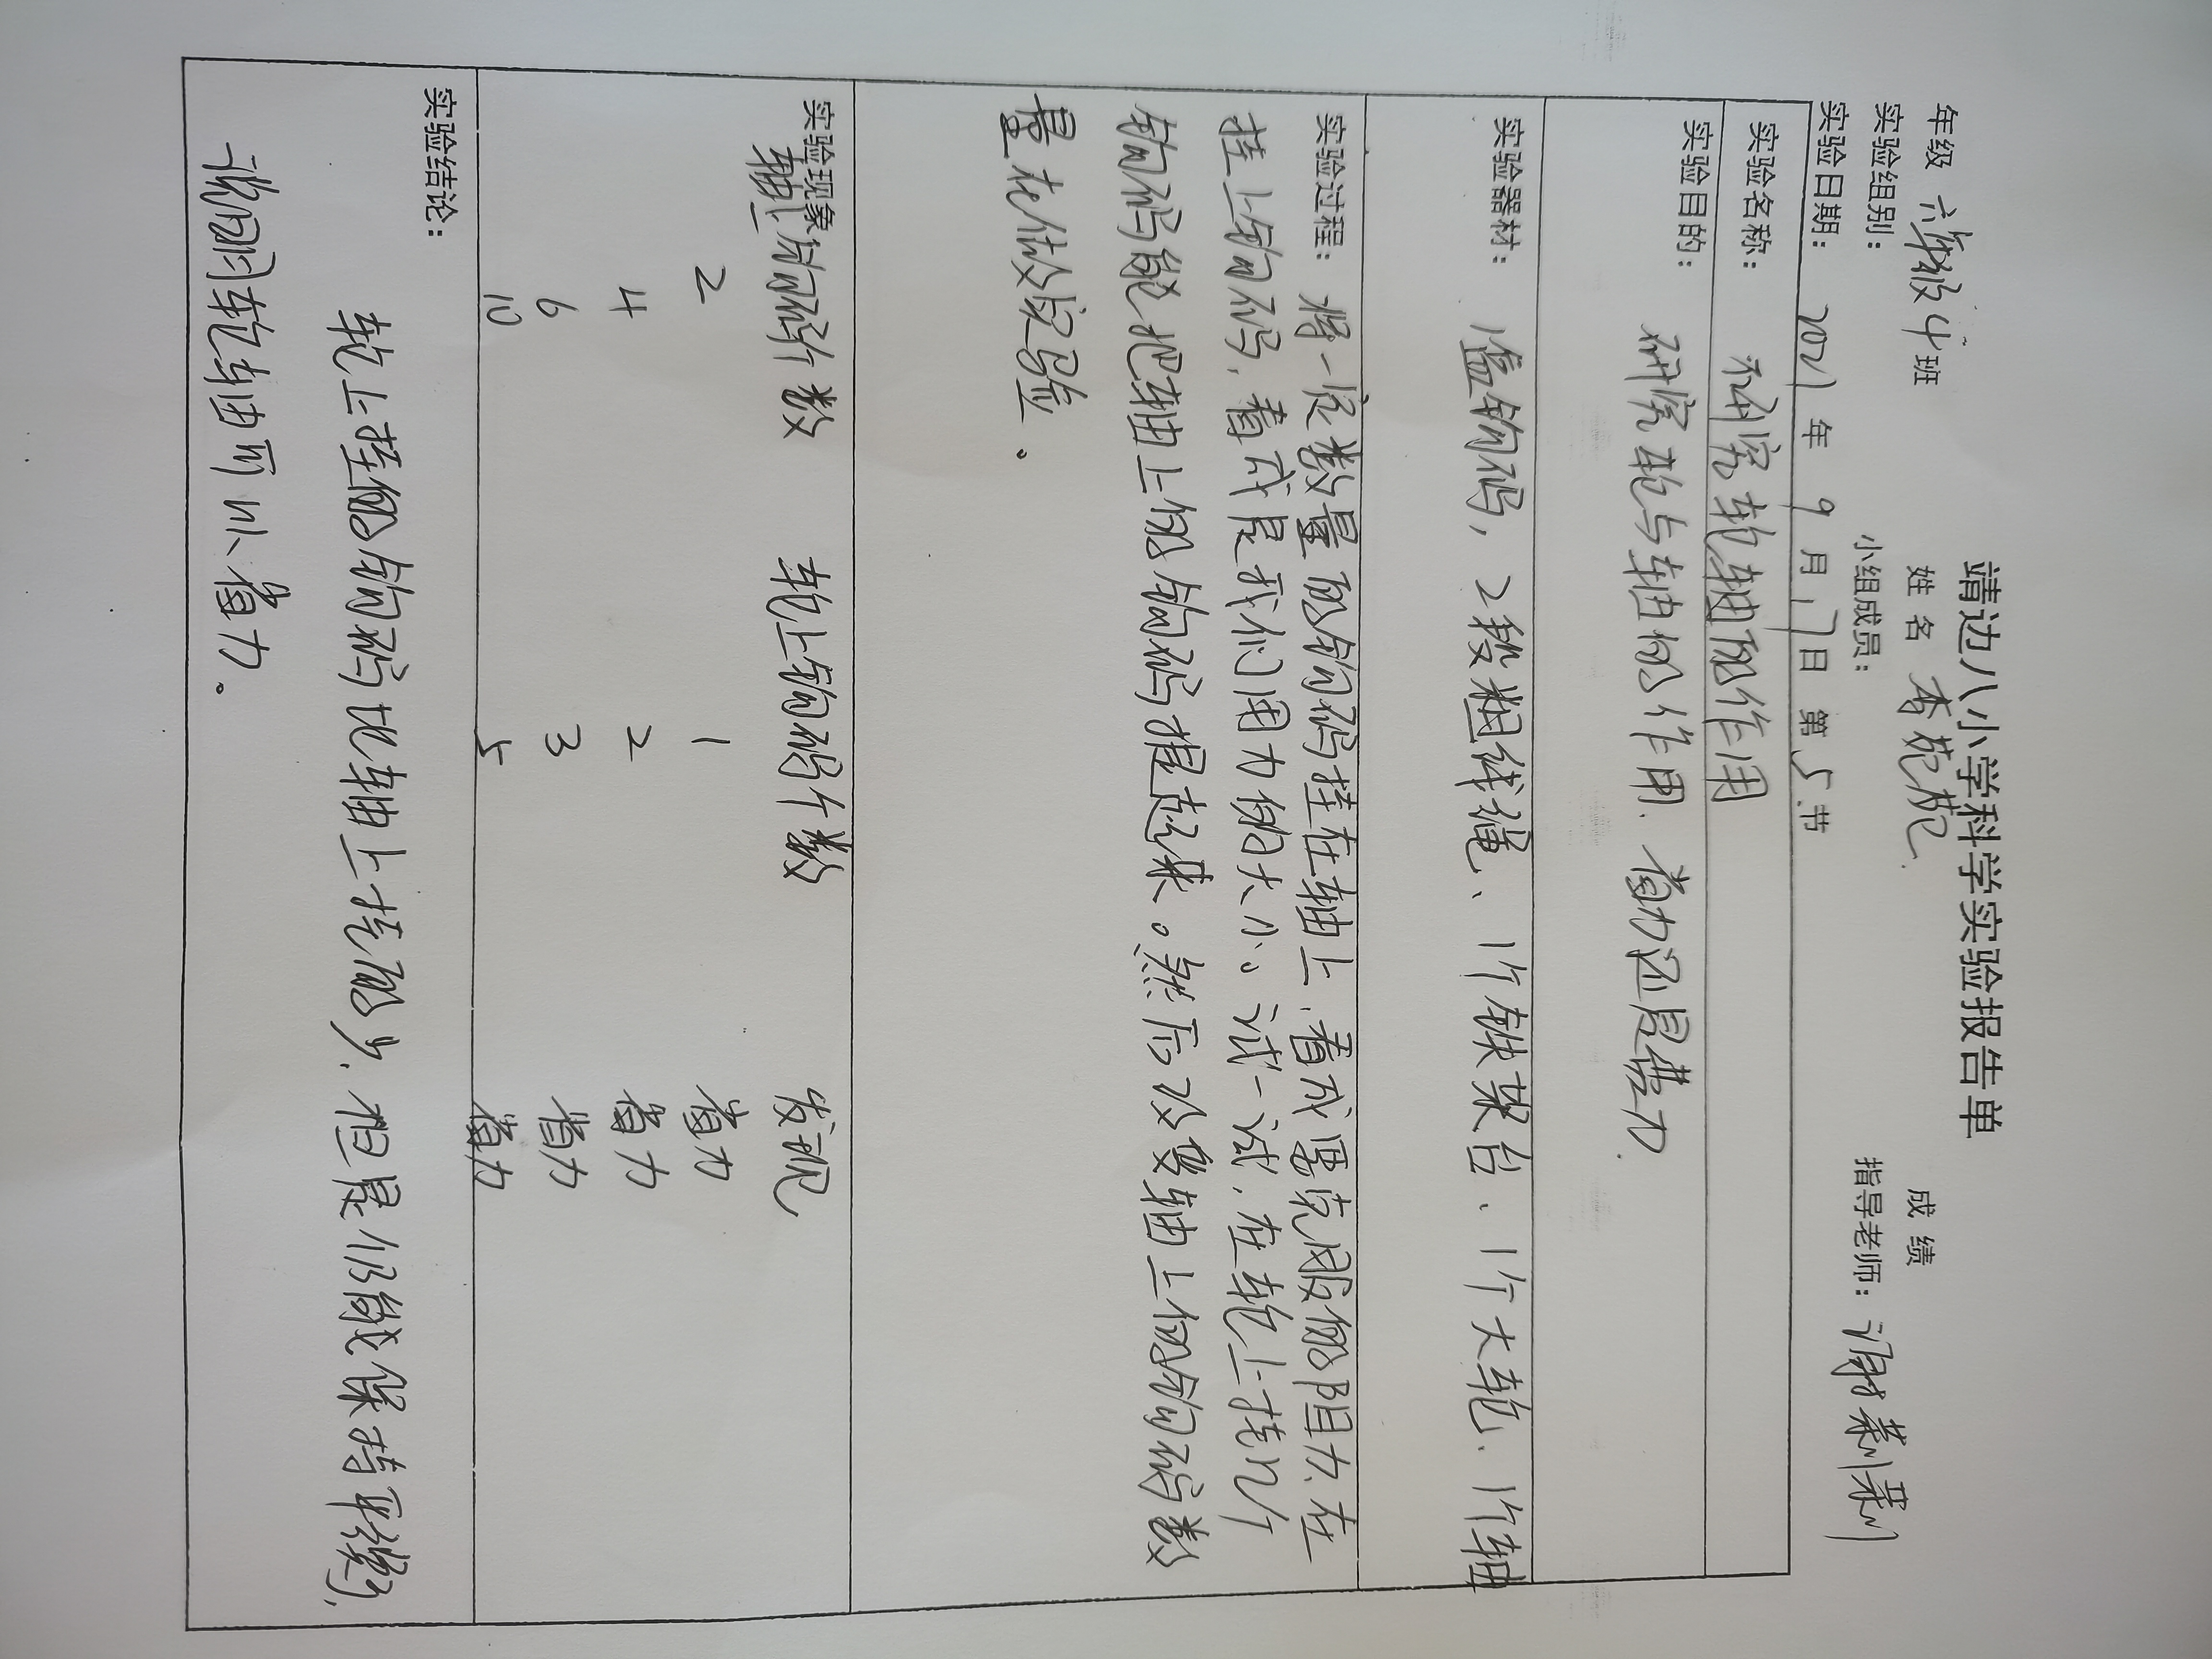 靖边八小学科学实验报告单
年级 六年级4班 姓名 李苑苑 成绩
实验组别： 小组成员： 指导老师：谢慕蓉
实验日期： 2021 年 9 月 17 日 第 5 节
实验名称： 研究轮轴的作用
实验目的： 研究轮与轴的作用、省力还是费力.
实验器材： 1盒钩码，2段粗线绳、1个铁架台、1个大轮、1个轴
实验过程： 将一定数量的钩码挂在轴上，看成要克服的阻力、在
挂上钩码，看成是我们用力的大小。试一试，在轮上挂几个
钩码能把轴上的钩码提起来。然后改变轴上的钩码数
量在做实验。
实验现象
轴上钩码个数 轮上钩码个数 发现
2 1 省力
4 2 省力
6 3 省力
10 5 省力
实验结论：
轮上挂的钩码比轴上挂的少，但是仍能保持平衡，
说明轮轴可以省力。